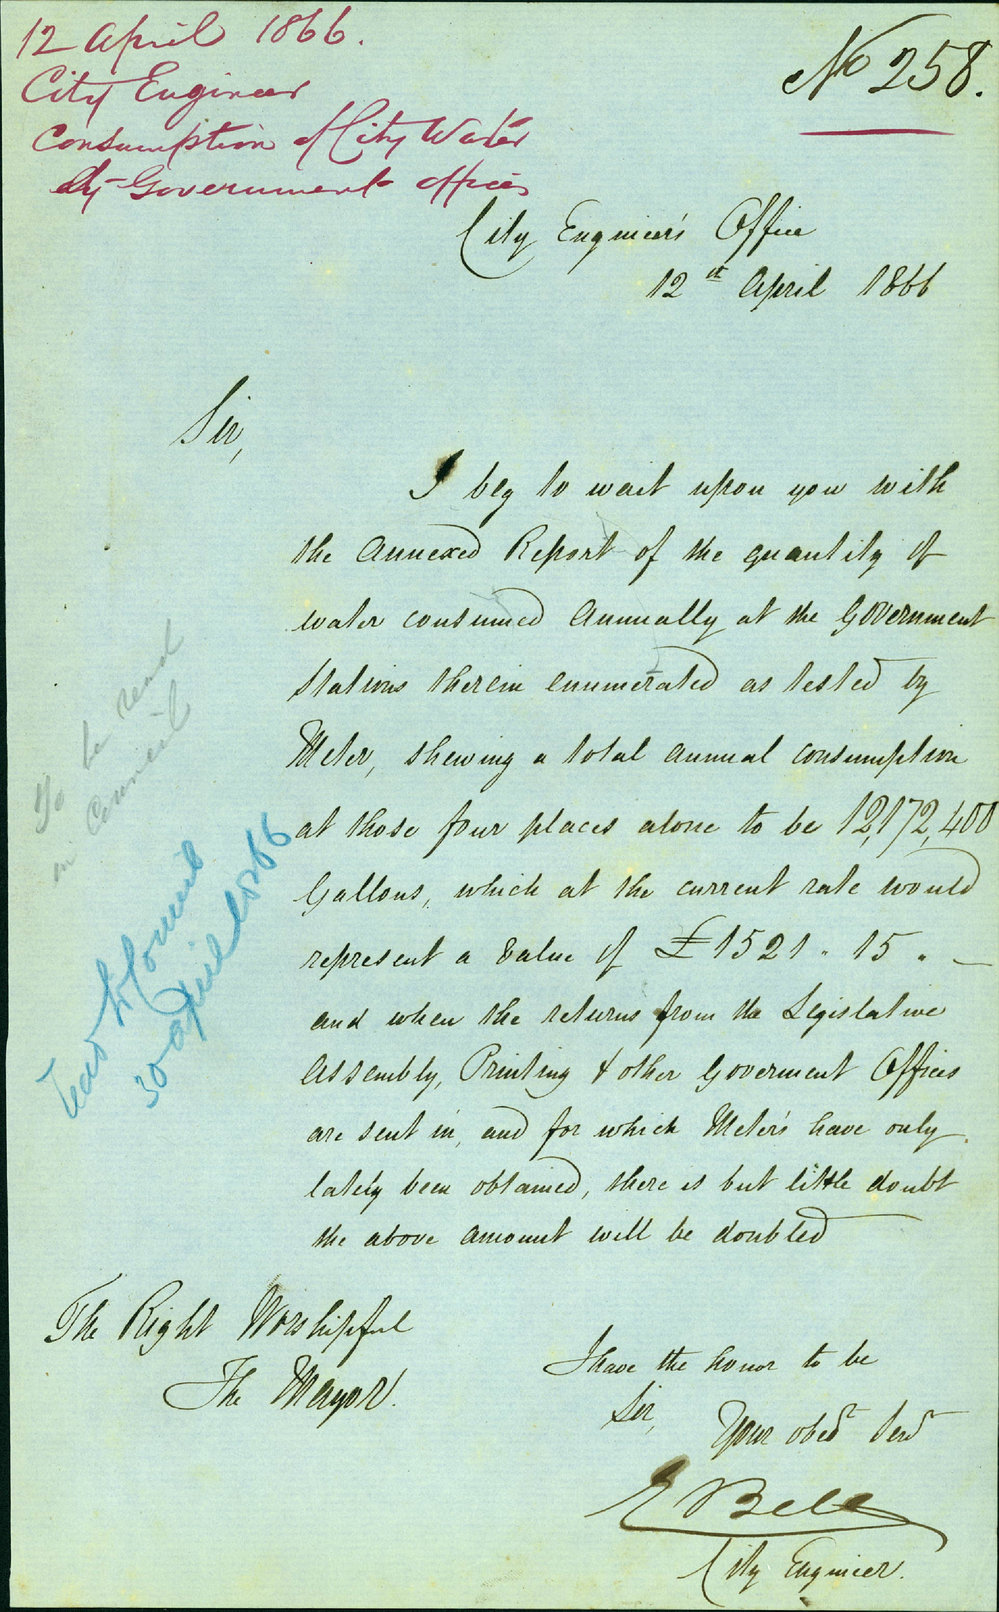 12 April 1866.
City Engineer
Consumption of City Water
by Government offices
No 258.
City Engineer's Office
12th April 1866
Sir,
I beg to wait upon you with
the Annexed Report of the quantity of
water consumed Annually at the Government
Stations therein enumerated as tested by
Meter, shewing a total annual consumption
at those four places alone to be 12,172,400
Gallons, which at the current rate would
represent a value of £1521 . 15 . —
and when the returns from the Legislative
Assembly, Printing & other Goverment Offices
are sent in, and for which Meter's have only
lately been obtained, there is but little doubt
the above amount will be doubled
The Right Worshipful
The Mayor.
I have the honor to be
Sir,
Your obedt Servt
E Bell
City Engineer.
To be read
in Council
Read to Council
30 April 1866